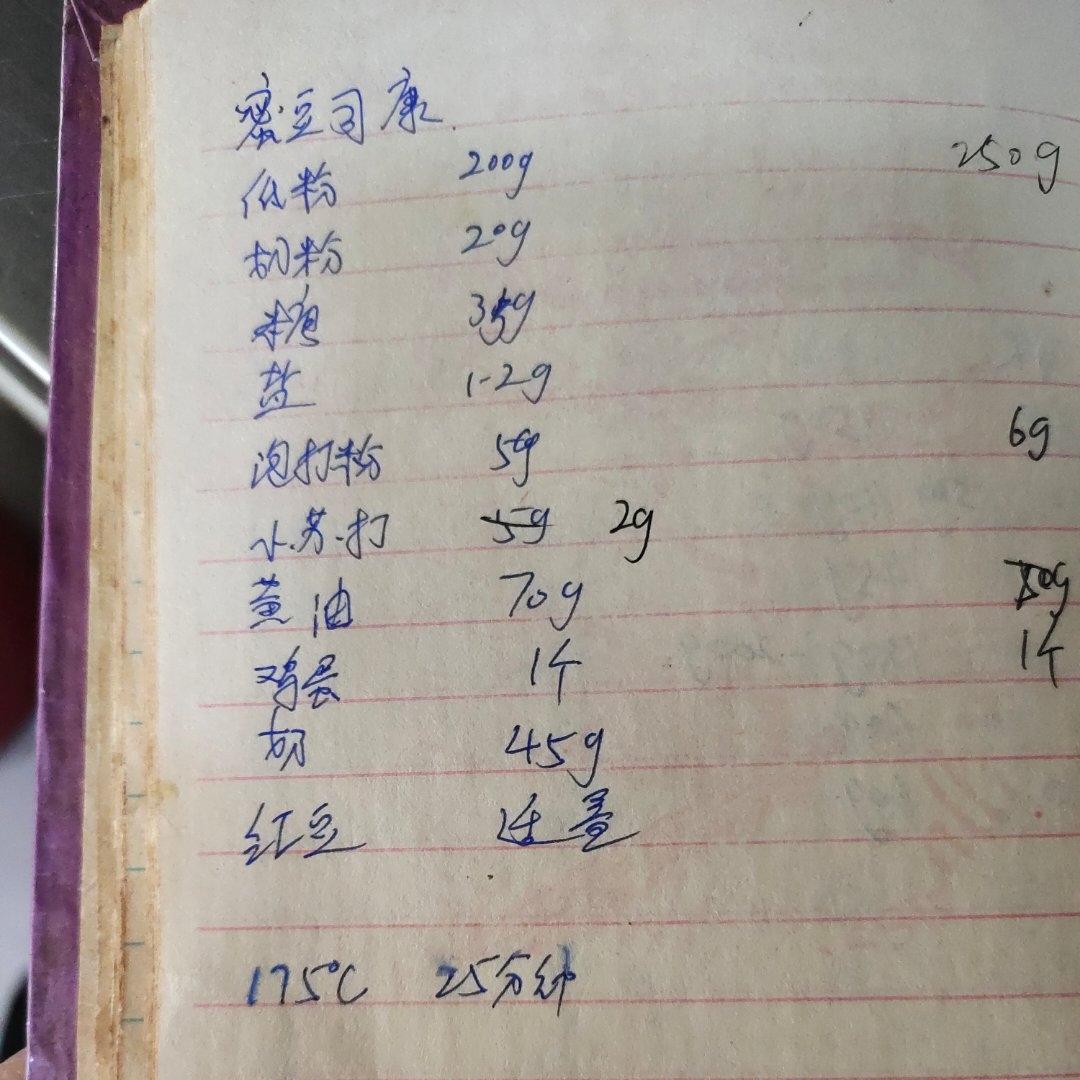 蜜豆司康
低粉 200g 250g
奶粉 20g
糖 35g
盐 1-2g
泡打粉 5g 6g
小苏打 5g 2g
黄油 70g 80g
鸡蛋 1个 1个
奶 45g
红豆 适量
175℃ 25分钟